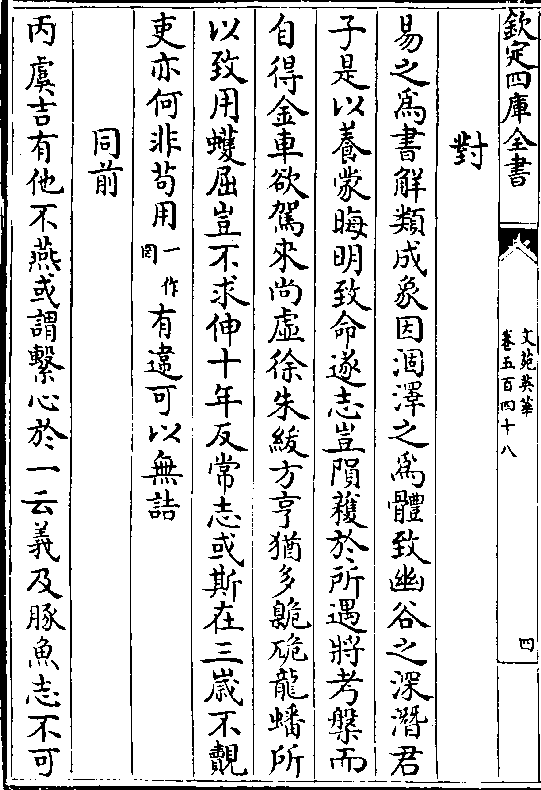 欽定四庫全書
文苑英華
卷五百四十八
四
對
易之爲書解類成象因涸澤之爲體致幽谷之深潛君
子是以養蒙晦明致命遂志豈隕穫於所遇將考槃而
自得金車欲駕來尚虛徐朱紱方亨猶多臲硊龍蟠所
以致用蠖屈豈不求伸十年反常志或斯在三歲不覿
吏亦何非苟用一作罔有違可以無詰
同前
丙虞吉有他不燕或謂繫心於一云義及豚魚志不可